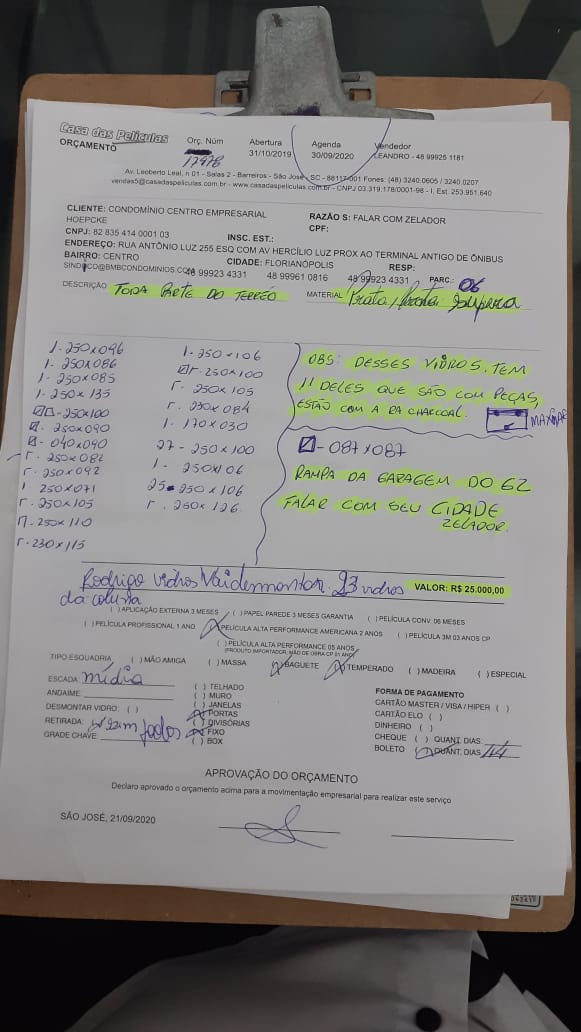 Casa das Películas
ORÇAMENTO
Orç. Núm
17978
Abertura
31/10/2019
Agenda
30/09/2020
Vendedor
LEANDRO - 48 99925 1181
Av. Leoberto Leal, n 01 - Salas 2 - Barreiros - São José - SC - 88117-001 Fones: (48) 3240.0605 / 3240.0207
vendas5@casadaspeliculas.com.br - www.casadaspeliculas.com.br - CNPJ 03.319.178/0001-98 - I. Est. 253.951.640
CLIENTE: CONDOMÍNIO CENTRO EMPRESARIAL
HOEPCKE
RAZÃO S: FALAR COM ZELADOR
CPF:
CNPJ: 82 835 414 0001 03
INSC. EST.:
ENDEREÇO: RUA ANTÔNIO LUZ 255 ESQ COM AV HERCÍLIO LUZ PROX AO TERMINAL ANTIGO DE ÔNIBUS
BAIRRO: CENTRO
CIDADE: FLORIANÓPOLIS
RESP:
SINDICO@BMBCONDOMINIOS.COM
48 99923 4331
48 99961 0816
48 99923 4331
PARC.: 06
DESCRIÇÃO TODA PARTE DO TERREO
MATERIAL Prata
1-250x096
1-250x086
1-250x085
1-250x135
-250x100
-250x090
-040x090
-250x082
-250x092
1 250x071
-250x105
-250x110
-230x115
1-250x106
-250x100
-250x105
-230x084
1-170x030
27-250x100
1-250x106
25-250x106
-250x126
OBS: DESSES VIDROS TEM
11 DELES QUE SÃO COM PEÇAS,
ESTÃO COM A RA CHARCOAL.
-087x087
RAMPA DA GARAGEM DO G2
FALAR COM SEU CIDADE
ZELADOR.
Rodrigo vidros 23 vidros
da coluna
VALOR: R$ 25.000,00
( ) APLICAÇÃO EXTERNA 3 MESES ( ) PAPEL PAREDE 3 MESES GARANTIA ( ) PELÍCULA CONV. 06 MESES
( ) PELÍCULA PROFISSIONAL 1 ANO (X) PELÍCULA ALTA PERFORMANCE AMERICANA 2 ANOS ( ) PELÍCULA 3M 03 ANOS CP
( ) PELÍCULA ALTA PERFORMANCE 05 ANOS
(PRODUTO IMPORTADOR, MÃO DE OBRA CP 01 ANO)
TIPO ESQUADRIA ( ) MÃO AMIGA ( ) MASSA (X) BAGUETE (X) TEMPERADO ( ) MADEIRA ( ) ESPECIAL
ESCADA: mídia
ANDAIME:
DESMONTAR VIDRO: ( )
RETIRADA: sim todos
GRADE CHAVE:
( ) TELHADO
( ) MURO
( ) JANELAS
(X) PORTAS
( ) DIVISÓRIAS
(X) FIXO
( ) BOX
FORMA DE PAGAMENTO
CARTÃO MASTER / VISA / HIPER ( )
CARTÃO ELO ( )
DINHEIRO ( )
CHEQUE ( ) QUANT. DIAS:
BOLETO ( ) QUANT. DIAS 14
APROVAÇÃO DO ORÇAMENTO
Declaro aprovado o orçamento acima para a movimentação empresarial para realizar este serviço
SÃO JOSÉ, 21/09/2020